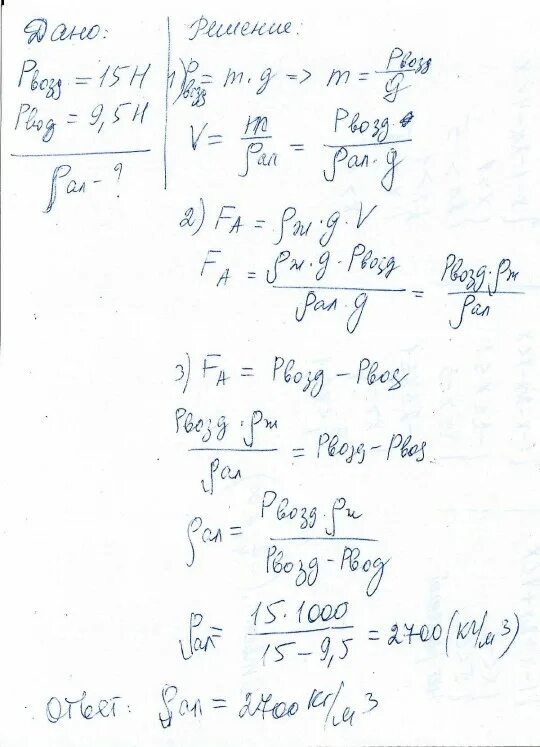 Дано:
Pвозд = 15Н
Pвод = 9,5Н
ρал - ?
Решение:
1) Pвозд = m·g => m = Pвозд/g
V = m/ρал = Pвозд/(ρал·g)
2) FA = ρж·g·V
FA = (ρж·g·Pвозд)/(ρал·g) = (Pвозд·ρж)/ρал
3) FA = Pвозд - Pвод
(Pвозд·ρж)/ρал = Pвозд - Pвод
ρал = (Pвозд·ρж)/(Pвозд - Pвод)
ρал = (15·1000)/(15-9,5) = 2700 (кг/м3)
Ответ: ρал = 2700 кг/м3